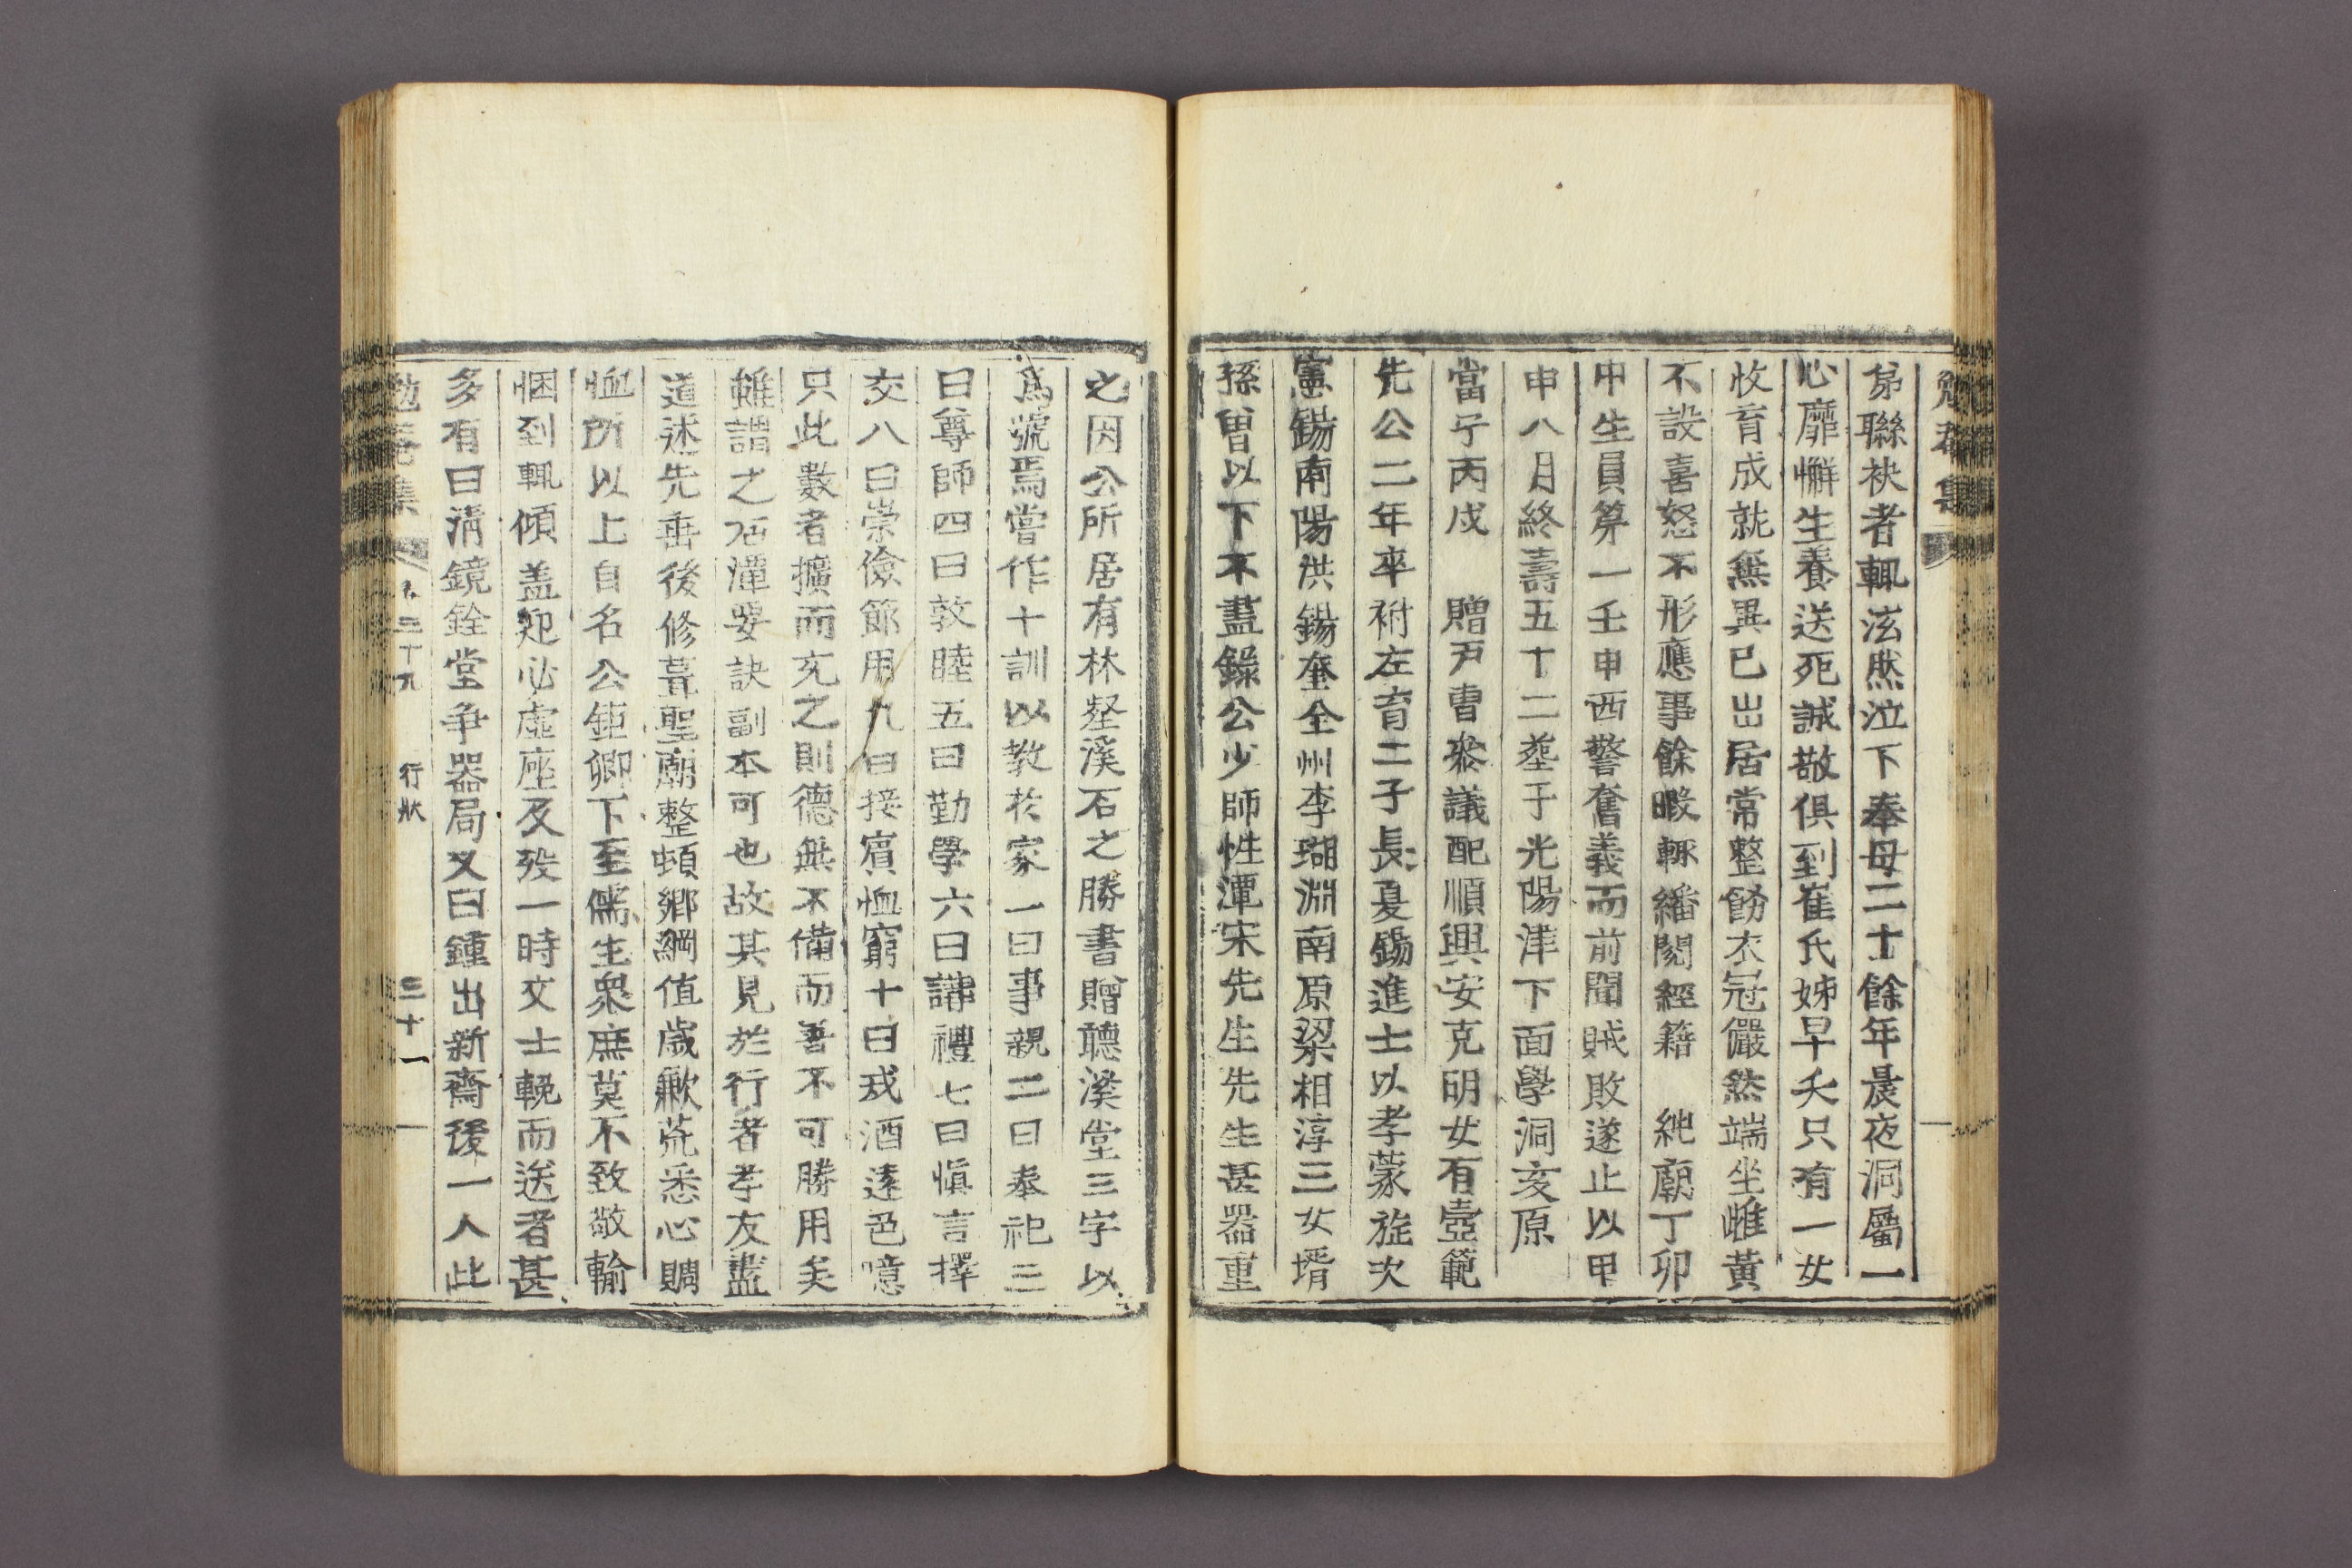 勉菴集
弟聯袂者輒泫然泣下奉母二十餘年晨夜洞屬一
心靡懈生養送死誠敬俱到崔氏姊早夭只有一女
收育成就無異已出居常整飭衣冠儼然端坐雌黃
不設喜怒不形應事餘暇輒繙閱經籍 純廟丁卯
中生員筭一壬申西警奮義而前聞賊敗遂止以甲
申八月終壽五十二塟于光陽津下面學洞亥原
當宁丙戌 贈戶曹叅議配順興安克明女有壼範
先公二年卒祔左育二子長夏錫進士以孝蒙旌次
憲錫南陽洪錫奎全州李瑚淵南原梁相淳三女壻
孫曾以下不盡錄公少師性潭宋先生先生甚器重
之因公所居有林壑溪石之勝書贈聽溪堂三字以
爲號焉嘗作十訓以敎於家一曰事親二曰奉祀三
曰尊師四曰敦睦五曰勤學六曰講禮七曰愼言擇
交八曰崇儉節用九曰接賓恤窮十曰戒酒遠色噫
只此數者擴而充之則德無不備而善不可勝用矣
雖謂之石潭要訣副本可也故其見於行者孝友盡
道述先垂後修葺聖廟整頓鄉綱值歲歉荒悉心賙
恤所以上自名公鉅卿下至儒生衆庶莫不致敬輸
悃到輒傾盖迎必虛座及歿一時文士輓而送者甚
多有曰淸鏡銓堂爭器局又曰鍾出新齋後一人此
勉菴集 卷二十九 行狀 三十一